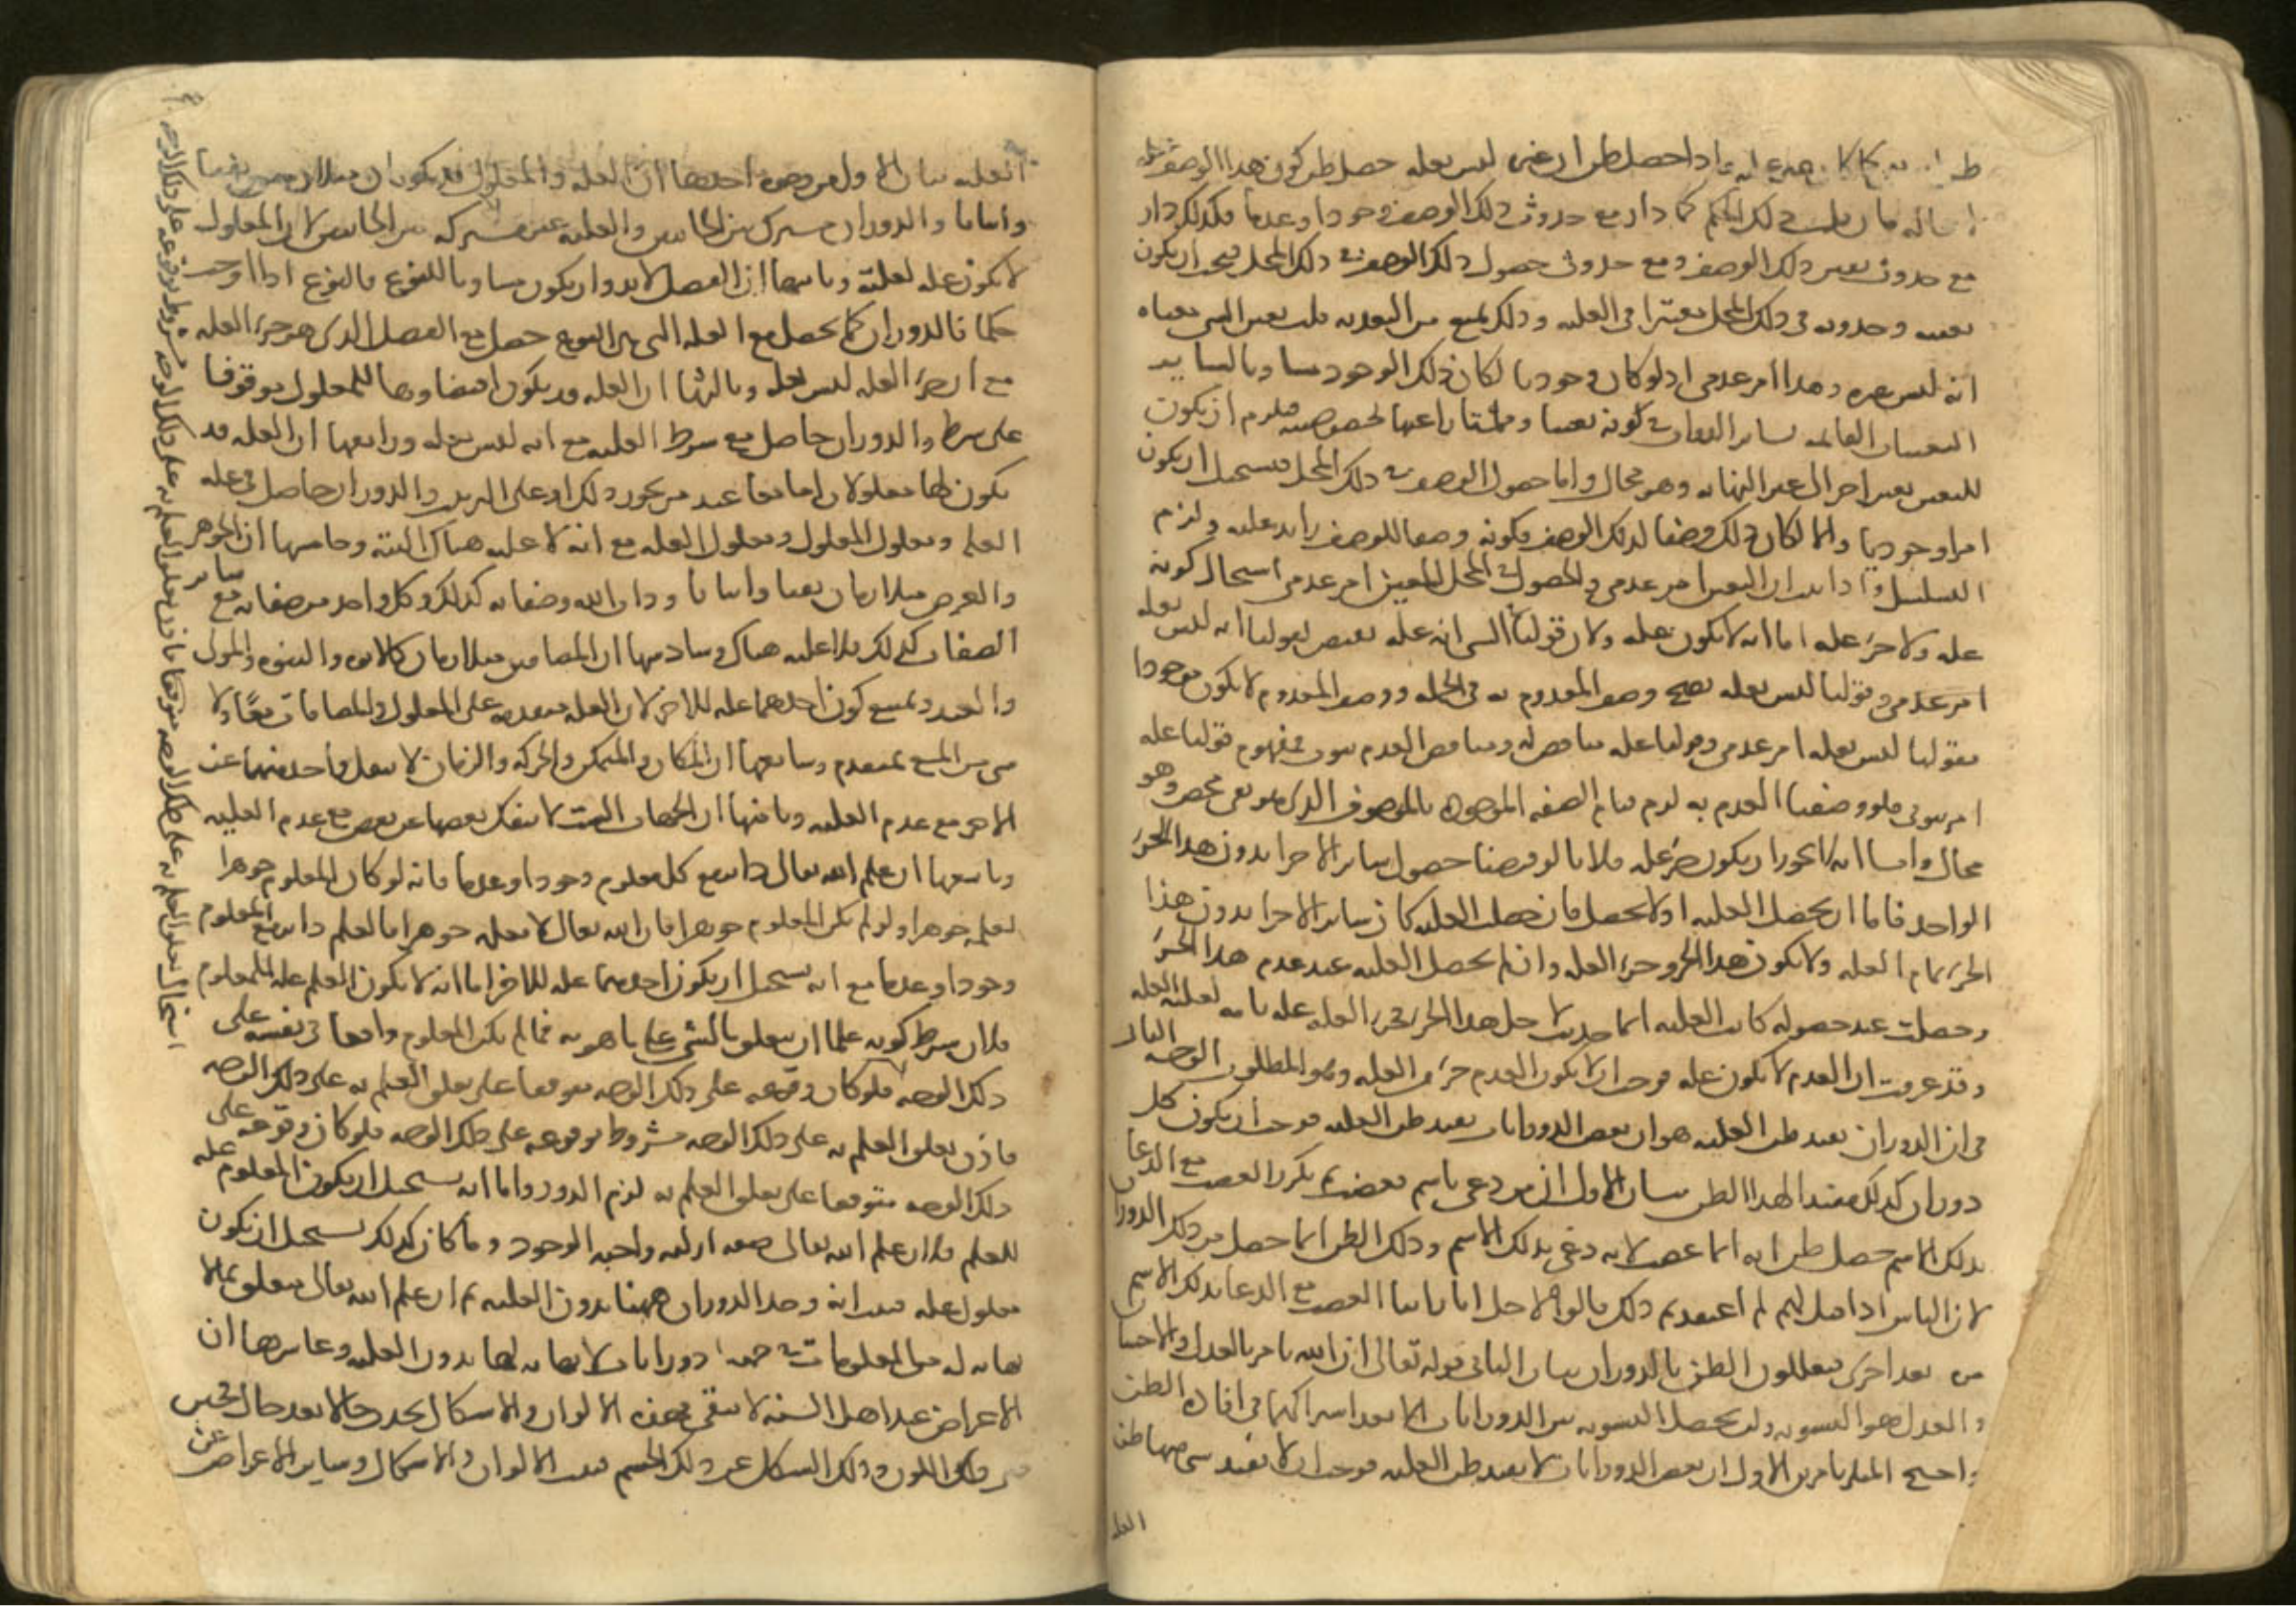 اذا حصل ظن ان غيره ليس بعله حصل ظن كون هذا الوصف عله
ذلك الحكم كما دار مع حدوث ذلك الوصف وجودا وعدما فكذلك دار
مع حدوث تعين ذلك الوصف ومع حدوث حصول ذلك الوصف في ذلك المحل فيجب ان يكون
تعينه وحدوثه في ذلك المحل معتبرا في العليه وذلك يمنع من التعديه قلت تعين الشي معناه
انه ليس غيره وهذا امر عدمي اذ لو كان وجوديا لكان ذلك الوجود مساويا لساير
التعينات القايمه بساير الذوات في كونه تعينا وممتازا عنها بخصوصيته فيلزم ان يكون
للتعين تعين اخر الى غير النهايه وهو محال واما حصول الوصف في ذلك المحل فيستحيل ان يكون
امرا وجوديا والا لكان ذلك وصفا لذلك الوصف فكونه وصفا للوصف زايد عليه ولزم
التسلسل واذا ثبت ان التعين امر عدمي والحصول في المحل المعين امر عدمي استحال كونه
عله ولا جزء عله اما انه لا يكون عله فلان قولنا في الشي انه عله نقيض لقولنا انه ليس بعله
امر عدمي وقولنا ليس بعله يصح وصف المعدوم به في الجمله ووصف المعدوم لا يكون موجودا
فقولنا ليس بعله امر عدمي وقولنا عله مناقض له ومناقض العدم ثبوت فمفهوم قولنا عله
امر ثبوتي فلو وصفنا العدم به لزم قيام الصفه الموجوده بالموصوف الذي هو نفي محض وهو
محال واما انه لا يجوز ان يكون جزء عله فلانا لو فرضنا حصول ساير الاجزا بدون هذا الجزء
الواحد فاما ان يحصل العليه او لا يحصل فان حصلت العليه كان ساير الاجزا بدون هذا
الجزء تمام العله ولا يكون هذا الجزو جزء العله وان لم يحصل العليه عند عدم هذا الجزء
وحصلت عند حصوله كانت العليه انما حدثت لاجل هذا الجزء فجزء العله عله تامه لعليه العله
وقد عرفت ان العدم لا يكون عله فوجب ان لا يكون العدم جزءا من العله وهو المطلوب الوجه الثاني
في ان الدوران يفيد ظن العليه هو ان بعض الدورانات يفيد ظن العليه فوجب ان يكون كل
دوران كذلك مفيدا لهذا الظن بيان الاول ان من دعي باسم فغضب ثم تكرر الغضب مع الدعا
بذلك الاسم حصل ظن انه انما غضب لانه دعي بذلك الاسم وذلك الظن انما حصل من ذلك الدوران
لان الناس اذا قيل لهم لم اعتقدتم ذلك قالوا لاجل انا راينا الغضب مع الدعا بذلك الاسم
مره بعد اخرى فيعللون الظن بالدوران بيان الثاني قوله تعالى ان الله يامر بالعدل والاحسان
والعدل هو التسويه ولن يحصل التسويه بين الدورانات الا بعد اشتراكها في افاده الظن
واحتج المنكر بامرين الاول ان بعض الدورانات لا يفيد ظن العليه فوجب ان لا يفيد شي منها ظن
العليه
العليه بيان الاول من وجوه احدها ان العله والمعلول قد يكونان متلازمين نفيا
واثباتا والدوران مشترك من الجانبين والعليه غير مشتركه من الجانبين لان المعلول
لا يكون عله لعلته وثانيها ان الفصل لا بد وان يكون مساويا للنوع فالنوع اذا اوجب
حكما فالدوران كما يحصل مع العله التي هي النوع حصل مع الفصل الذي هو جزء العله
مع ان جزء العله ليس بعله وثالثها ان العله قد يكون اقتضاوها للمعلول موقوفا
على شرط والدوران حاصل مع شرط العليه مع انه ليس بعله ورابعها ان العله قد
يكون لها معلولان اما معا عند من يجوز ذلك او على الترتيب والدوران حاصل في عله
العله ومعلول المعلول ومعلول العله مع انه لا عليه هناك البته وخامسها ان الجوهر
والعرض متلازمان نفيا واثباتا وذات الله وصفاته كذلك وكل واحد من صفاته مع ساير
الصفات كذلك فلا عليه هناك وسادسها ان المضافين متلازمان كالابوه والبنوه والمولى
والعبد ويمتنع كون احدهما عله للاخر لان العله متقدمه على المعلول والمضافات معا ولا
شي من المع بمتقدم وسابعها ان المكان والمتمكن والحركه والزمان لا ينفك واحد منها عن
الاخر مع عدم العليه وثامنها ان الجهات الست لا ينفك بعضها عن بعض مع عدم العليه
وتاسعها ان علم الله تعالى داير مع كل معلوم وجودا وعدما فانه لو كان المعلوم جوهرا
لعلمه جوهرا ولو لم يكن المعلوم جوهرا فان الله تعالى لا يعلمه جوهرا فالعلم داير مع المعلوم
وجودا وعدما مع انه يستحيل ان يكون احدهما عله للاخر اما انه لا يكون العلم عله للمعلوم
فلان شرط كونه علما ان يتعلق بالشي على ما هو به فما لم يكن المعلوم واقعا في نفسه على
ذلك الوجه فلو كان وقوعه على ذلك الوجه موقوفا على تعلق العلم به على ذلك الوجه
فاذن تعلق العلم به على ذلك الوجه مشروط بوقوعه على ذلك الوجه فلو كان وقوعه على
ذلك الوجه متوقفا على تعلق العلم به لزم الدور واما انه يستحيل ان يكون المعلوم عله
للعلم فلان علم الله تعالى صفه ازليه واجبه الوجود وما كان كذلك يستحيل ان يكون
معلول عله فثبت انه وجد الدوران ههنا بدون العليه ثم ان علم الله تعالى متعلق بما لا
نهايه له من المعلومات فهنا دورانات لا نهايه لها بدون العليه وعاشرها ان
الاعراض عند اهل السنه لا تبقى فهذه الالوان والاشكال يحدث حالا بعد حال فحين
فني ذلك اللون وذلك الشكل عن ذلك الجسم فنيت الالوان والاشكال وساير الاعراض عن
استحال تعلق العلم به على ذلك الوجه فاذن تعلق العلم به على ذلك الوجه مشروط بوقوعه على ذلك الوجه